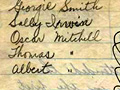 Georgie Smith
Selby Irwin
Oscar Mitchell
Thomas "
Albert "